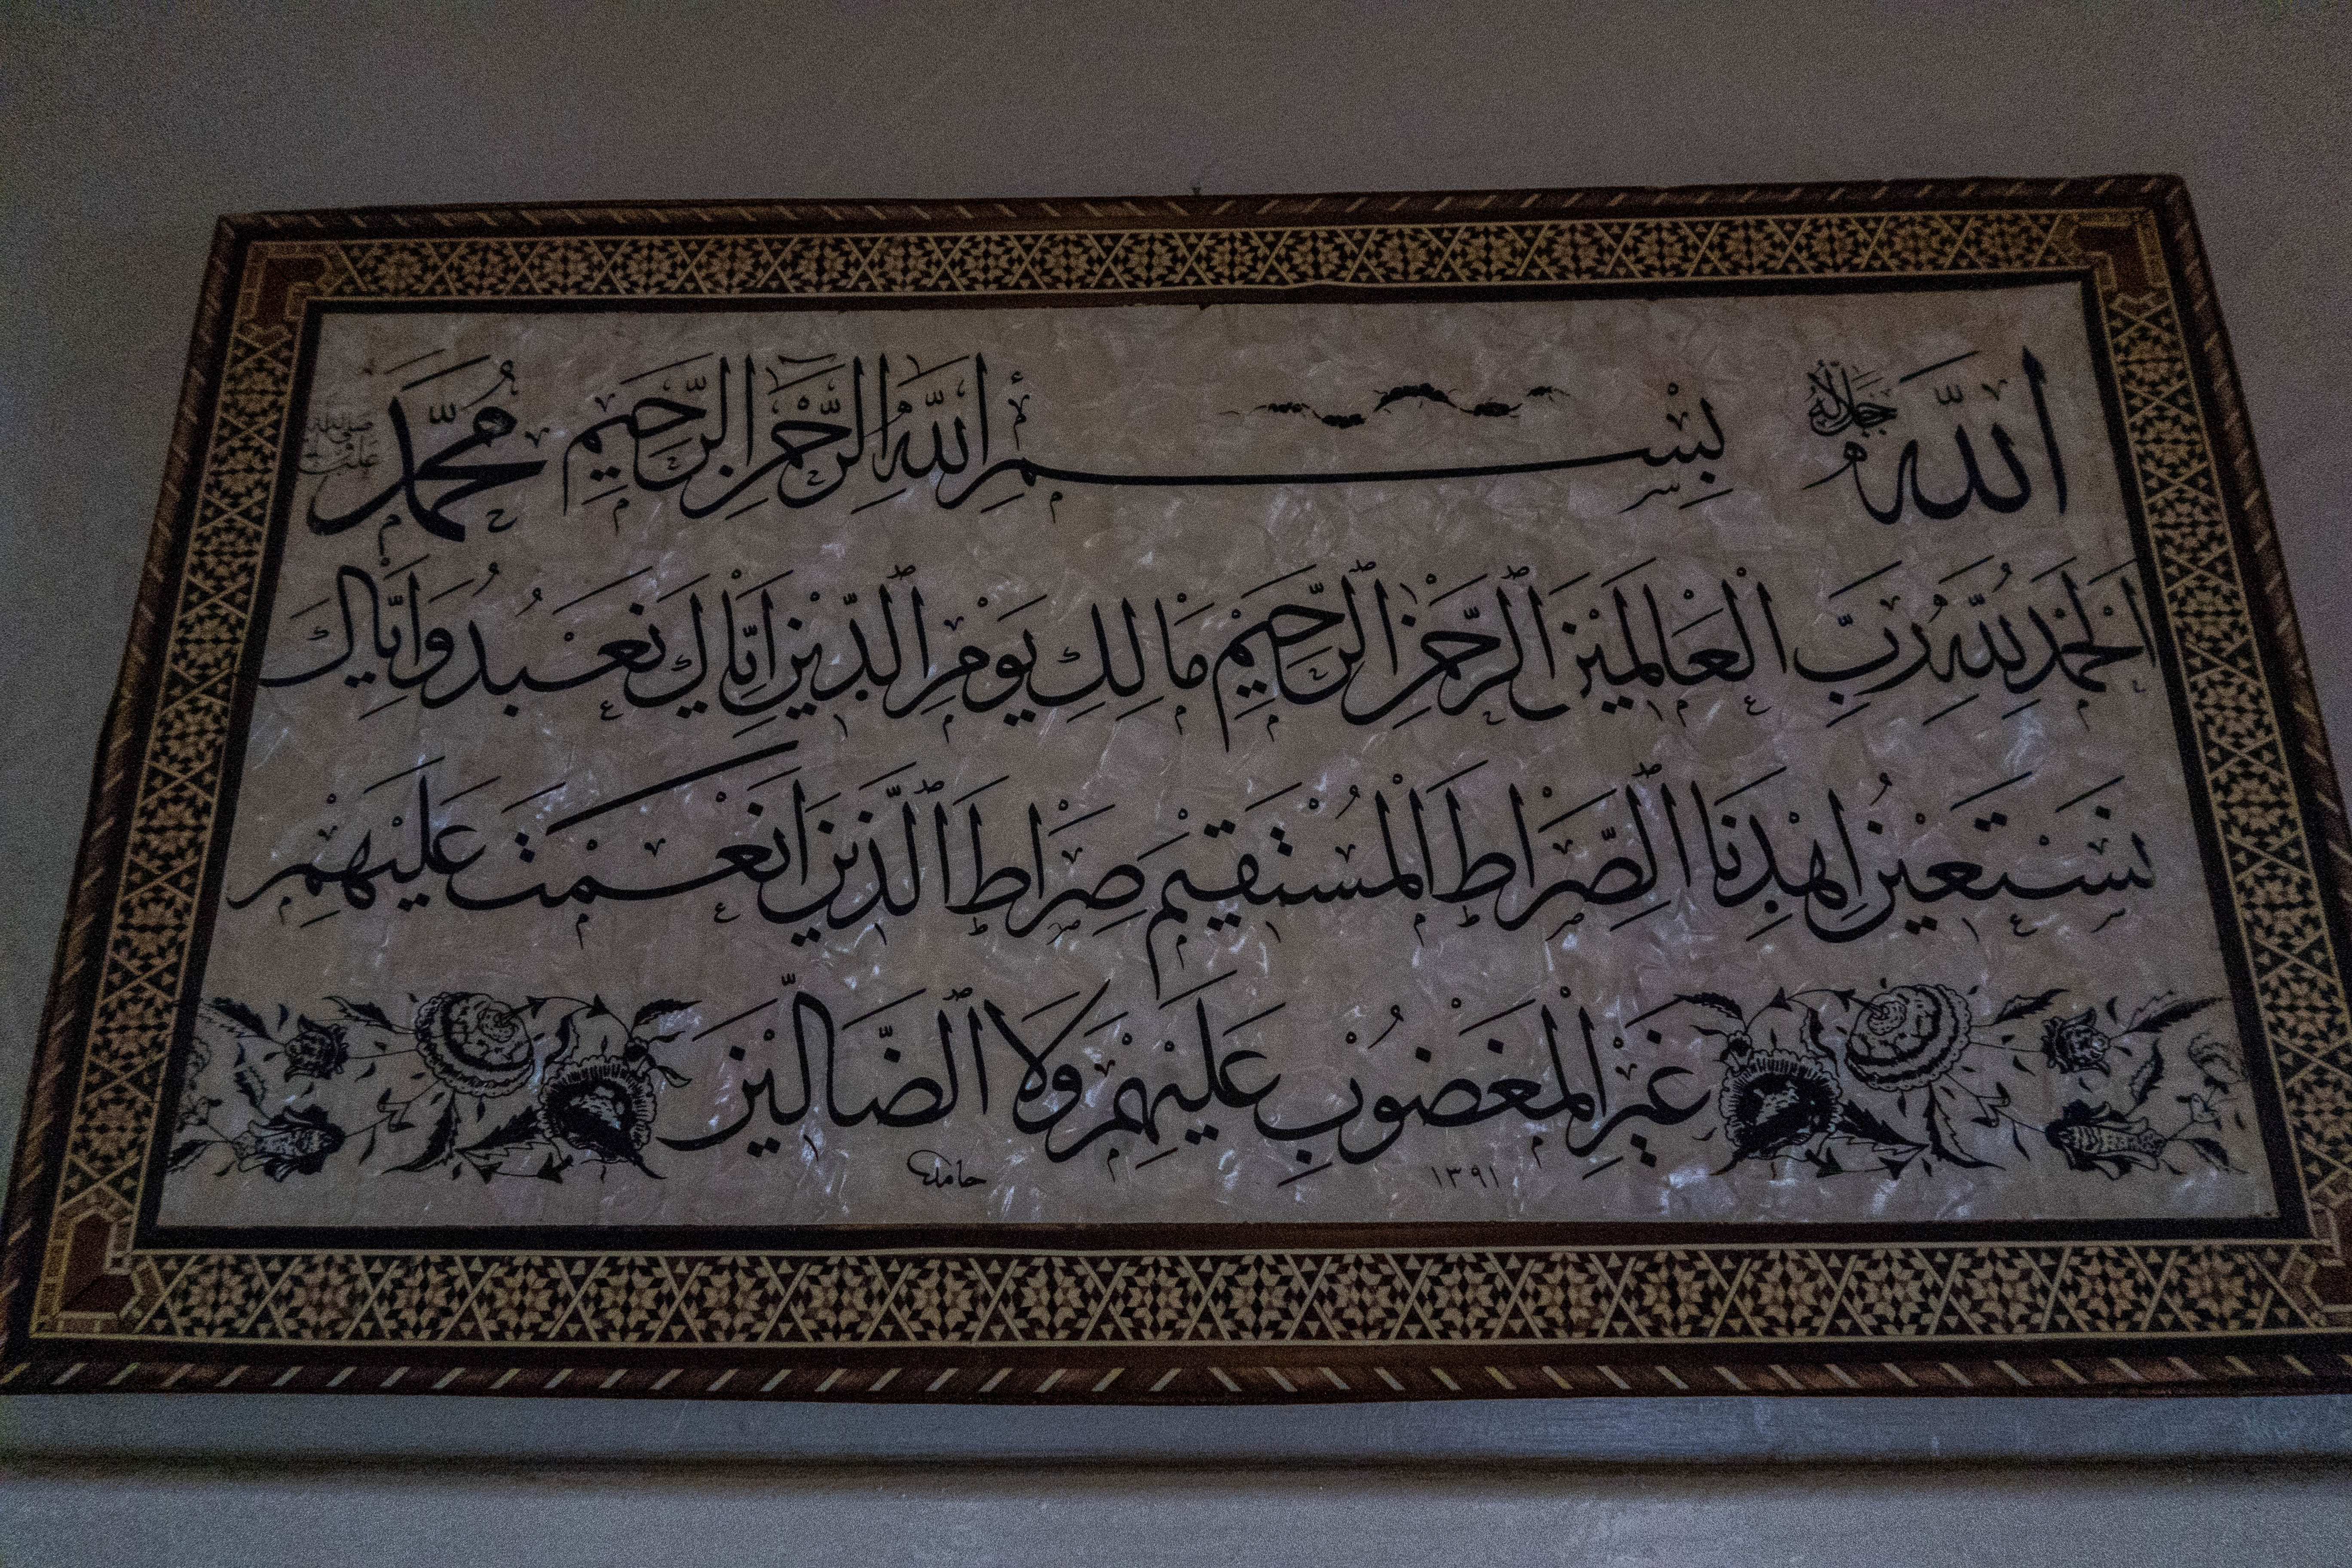 الله جل جلاله بسم الله الرحمن الرحيم محمد صلى الله عليه
اَلْحَمْدُ لِلّٰهِ رَبِّ الْعَالَمِيْنَ ٱلرَّحْمٰنِ ٱلرَّحِيْمِ مَالِكِ يَوْمِ ٱلدِّيْنِ اِيَّاكَ نَعْبُدُ وَاِيَّاكَ
نَسْتَعِيْنُ اِهْدِنَا ٱلصِّرَاطَ الْمُسْتَقِيْمَ صِرَاطَ ٱلَّذِيْنَ اَنْعَمْتَ عَلَيْهِمْ
غَيْرِ الْمَغْضُوْبِ عَلَيْهِمْ وَلَا ٱلضَّالِّيْنَ
١٣٩١ حامد